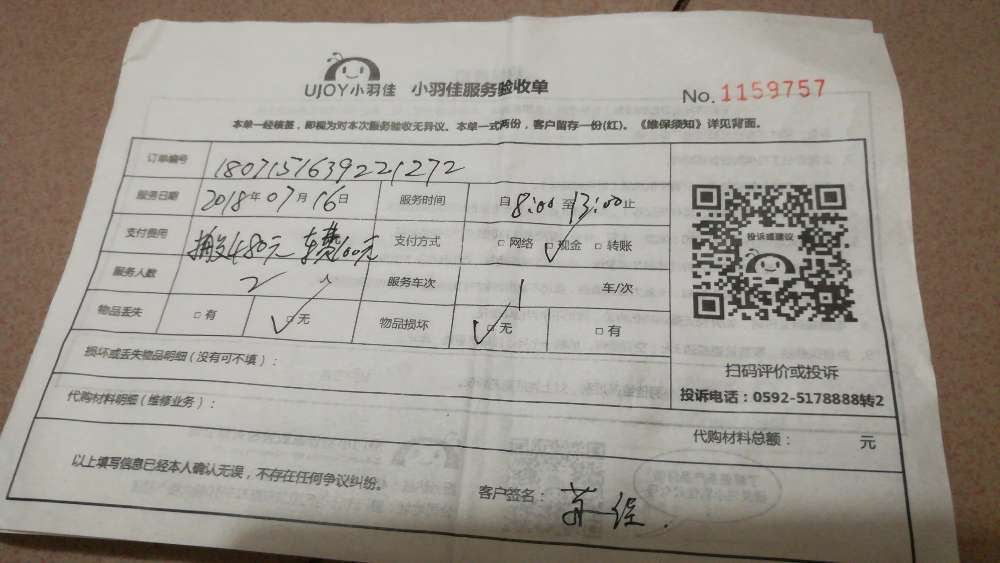 UJOY小羽佳 小羽佳服务验收单
No. 1159757
本单一经核签，即视为对本次服务验收无异议。本单一式两份，客户留存一份(红)。《维保须知》详见背面。
订单编号 1807151639221272
服务日期 2018年07月16日 服务时间 自8:00至13:00止
支付费用 搬480元 车费100元 支付方式 □网络 □现金 □转账
服务人数 2人 服务车次 1 车/次
物品丢失 □有 □无 物品损坏 □无 □有
投诉或建议
扫码评价或投诉
投诉电话：0592-5178888转2
损坏或丢失物品明细（没有可不填）：
代购材料明细（维修业务）：
代购材料总额： 元
以上填写信息已经本人确认无误，不存在任何争议纠纷。
客户签名：